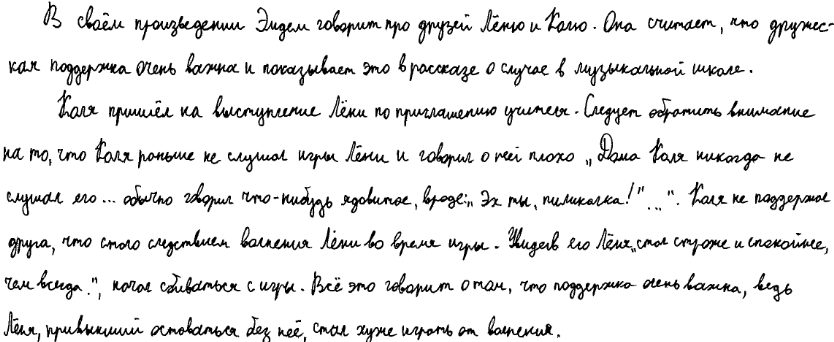 В своём произведении Эндем говорит про друзей Лёню и Колю. Она считает, что дружес-
кая поддержка очень важна и показывает это в рассказе о случае в музыкальной школе.
Коля пришёл на выступление Лёни по приглашению учителя. Следует обратить внимание
на то, что Коля раньше не слушал игры Лёни и говорил о ней плохо „Дома Коля никогда не
слушал его... обычно говорил что-нибудь ядовитое, вроде:„ Эх ты, пиликалка!"...". Коля не поддержал
друга, что стало следствием волнения Лёни во время игры. Увидев его Лёня„стал строже и спокойнее,
чем всегда.", начал сбиваться с игры. Всё это говорит о том, что поддержка очень важна, ведь
Лёня, привыкший оставаться без неё, стал хуже играть от волнения.